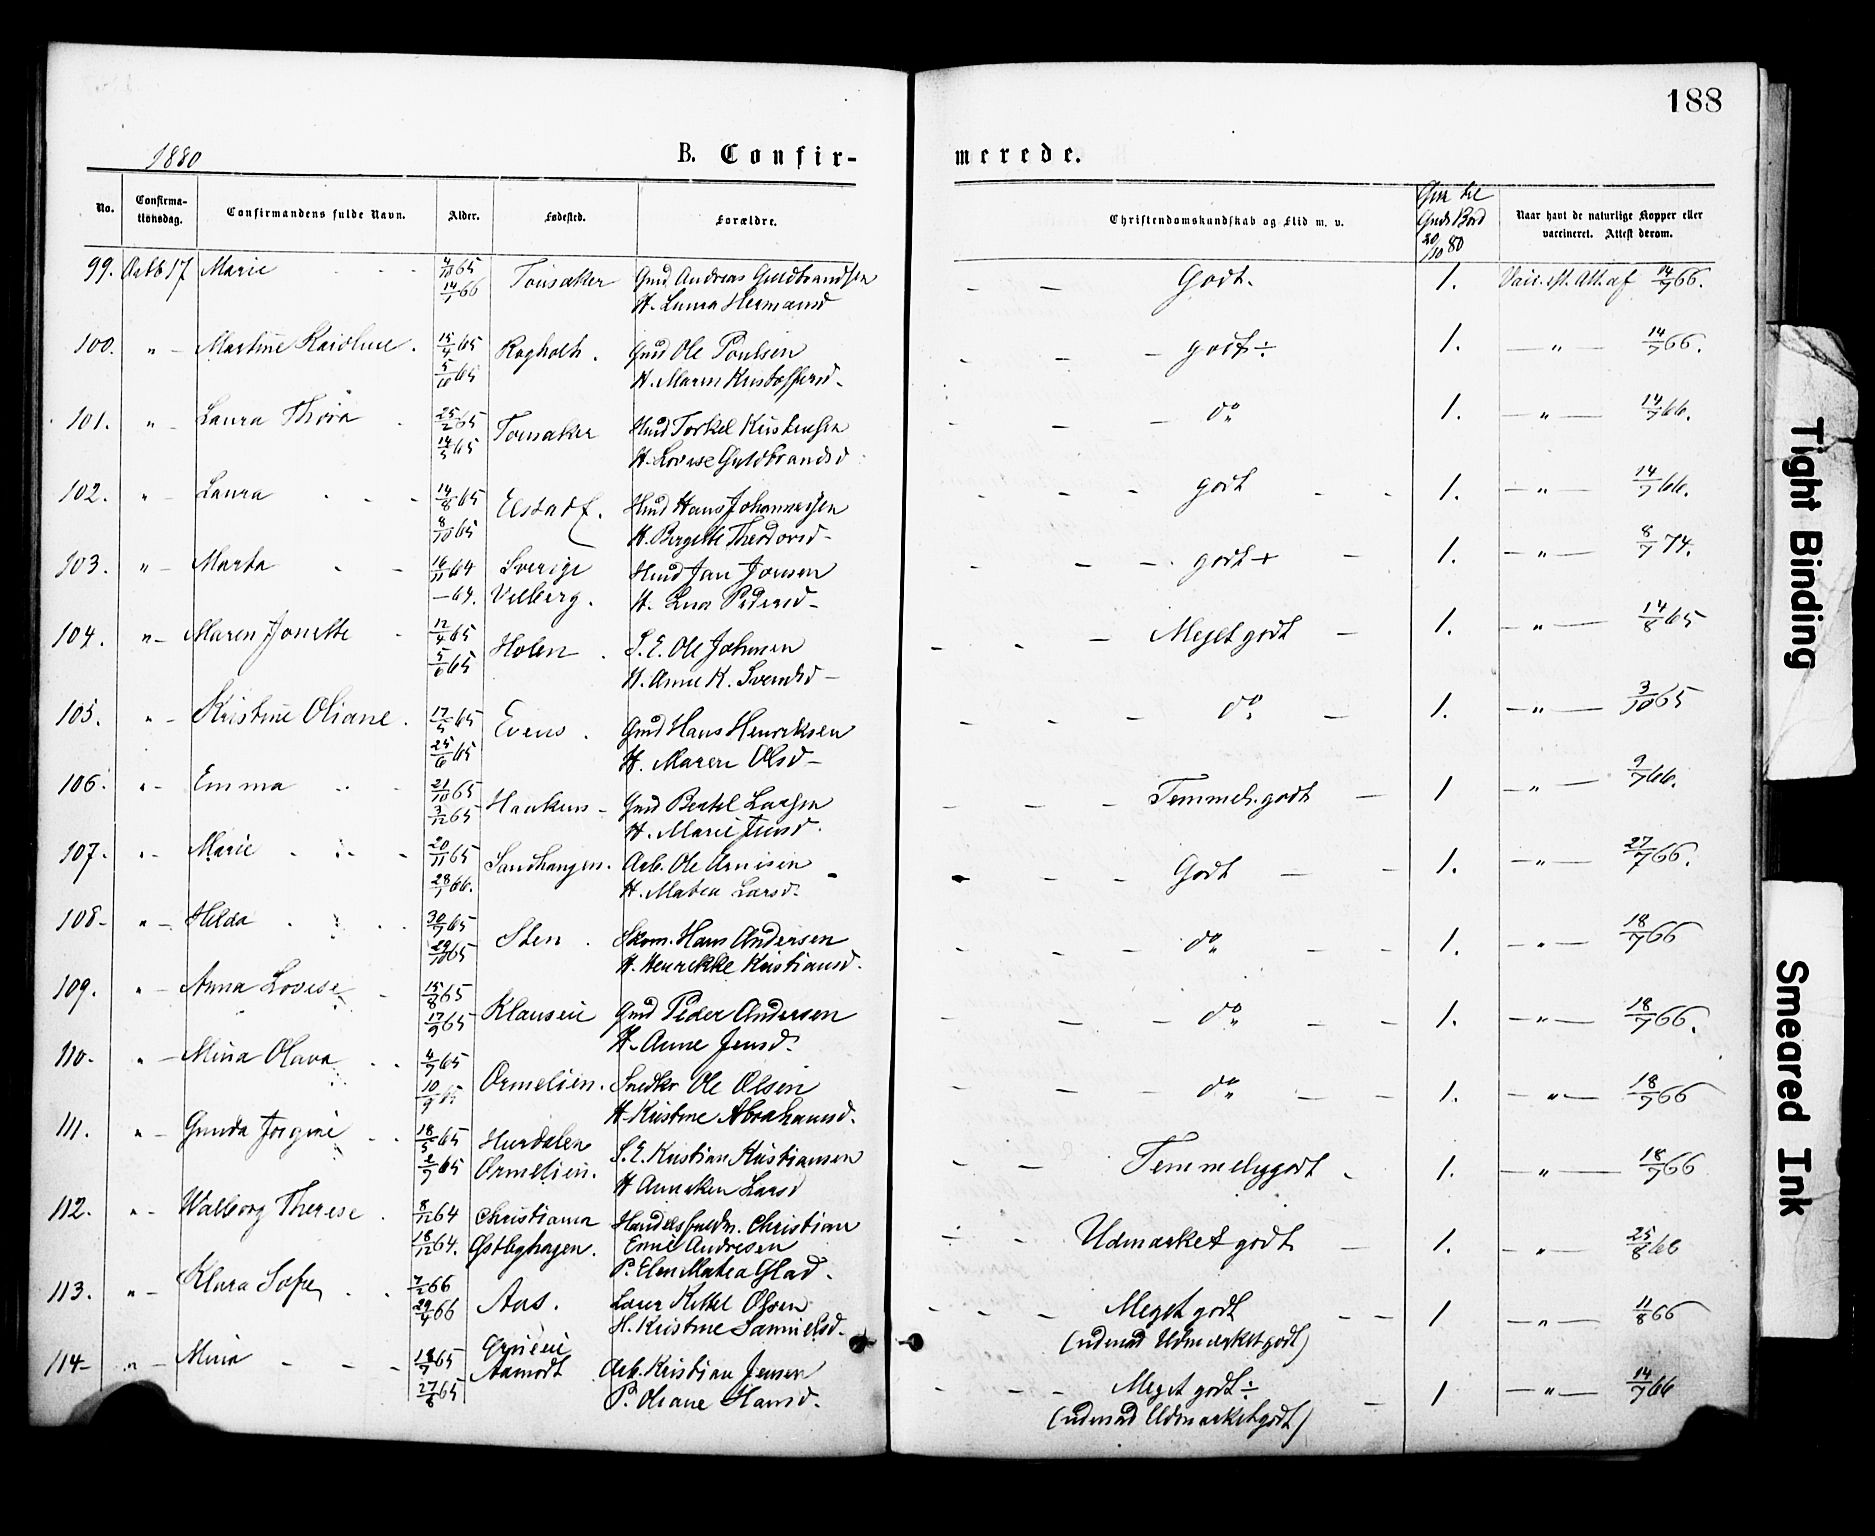 188
1880
B. Confir-
merede.
No.
Confirma-
tionsdag.
Confirmandens fulde Navn.
Alder.
Fødested.
Forældre.
Christendomskundskab og Flid m. v.
Guds Bord
20/10 80
Naar havt de naturlige Kopper eller
vaccineret. Attest derom.
99. Octb 17 Marie 4/10 65 Tonsaker Gmd. Andreas Guldbrandsen Godt. 1. Vacc. eft. Att. af 14/7 66.
14/1 66 H. Laura Hermansd
100. " - Martine Karoline. 15/4 65 Ragholt. Gmd Ole Poulsen godt ÷ 1. — " — 14/7 66.
5/6 65 H. Maren Kristoffersd.
101. " - Laura Thora 25/2 65 Tonsaker Hmd Torkel Kristensen do 1. — " — 14/7 66.
14/5 65 H. Lovise Guldbrandsd
102. " - Laura 14/8 65 Elstad f. Hmd Hans Johannesen godt 1. — " — 14/7 66.
8/10 65 H. Bergette Theodorsd-
103. " - Marta 16/11 64 Sverige Hmd Jan Jonsen godt + 1. — " — 8/7 74.
— 64. Vilberg. H. Lena Pedersd-
104. " - Maren Jonette 12/4 65 Holen S. E. Ole Johnsen Meget godt 1. — " — 14/8 65
5/6 65 H. Anne K. Svendsd -
105. " - Kristine Oliane. 17/5 65 Evens. Gmd Hans Henriksen do 1. — " — 3/10 65
25/6 65 H. Maren Olsd -
106. " - Emma 21/10 65 Haukens - Gmd Bertel Larsen Temmel. godt 1 — " — 9/7 66.
3/12 65 H. Marie Jensd.
107. " - Marie 20/11 65 Sandhangen. Arb. Ole Arnesen Godt 1. — " — 27/7 66.
28/1 66. H. Matea Larsd.
108- " - Hilda 30/7 65 Sten. Skom. Hans Andersen do 1. — " — 18/7 66
29/10 65 H. Henrikke Kristiansd.
109. " - Anna Lovise 15/8 65 Klauseie Gmd Peder Andersen do 1. — " — 18/7 66.
17/9 65 H. Anne Jensd.
110. " - Mina Olava 4/7 65 Ormelien. Snedker Ole Olsen do 1. — " — 18/7 66
10/9 65 H. Kristine Abrahamsd.
111. " - Gunda Jorgine 18/5 65 Hurdalen S. E. Kristian Kristiansen Temmelig godt 1. — " — 18/7 66
2/7 65 Ormelien. H Anneken Larsd
112. " - Walborg Therese 8/12 64 Christiania Christian Udmærket godt 1. — " — 25/8 66
18/12 64. Østbyhagen. Emil Andresen
P. Elen Matea Glad.
113. " - Klara Sofie 7/2 66 Aas. Lærer Kittel Olsen Meget godt 1 — " — 11/8 66
29/4 66 H. Kristine Samuelsd. (udenad Udmærket godt)
114- " - Mina 18/7 65 Aamodt Arb. Kristian Jensen Meget godt ÷ 1 — " — 14/7 66
27/8 65 P. Oliane Hansd. (udenad Udmærket godt)
Tight Binding
Smeared Ink